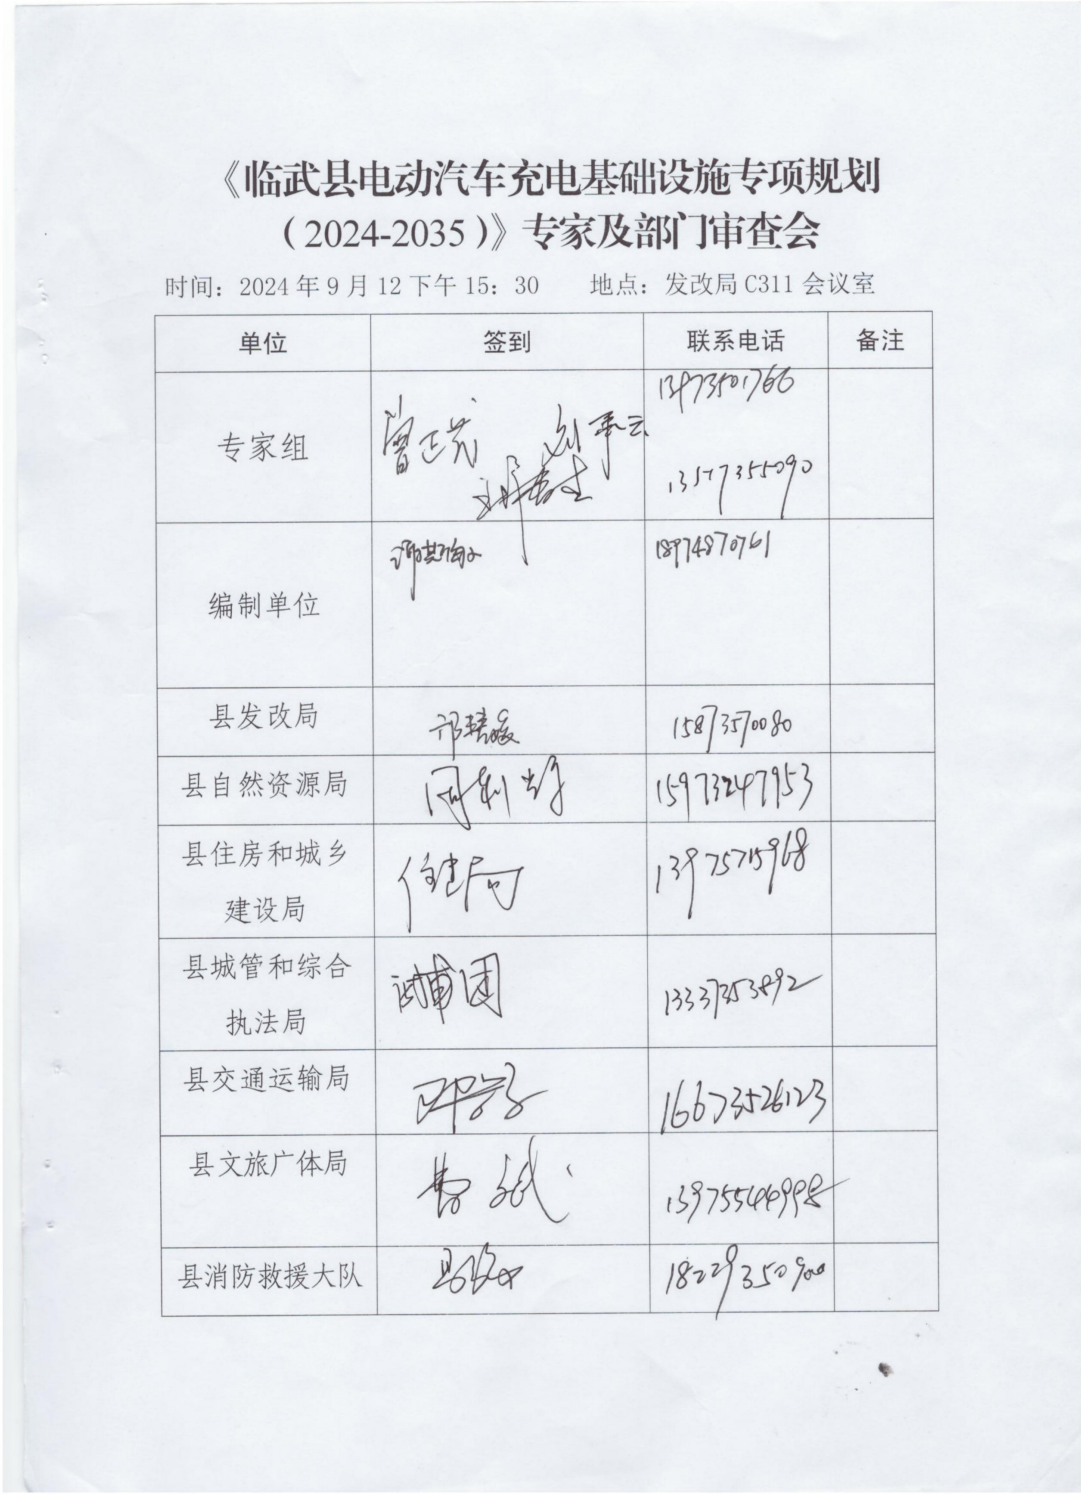 《临武县电动汽车充电基础设施专项规划
（2024-2035）》专家及部门审查会
时间：2024年9月12下午15：30 地点：发改局C311会议室
单位 签到 联系电话 备注
专家组 曾正茂 13973501766
13577355090
编制单位 18974870761
县发改局 15873570080
县自然资源局 15973247953
县住房和城乡
建设局 住建局 13975715968
县城管和综合
执法局 13337353892
县交通运输局 16673526123
县文旅广体局 曹斌 13975544998
县消防救援大队 18229350900